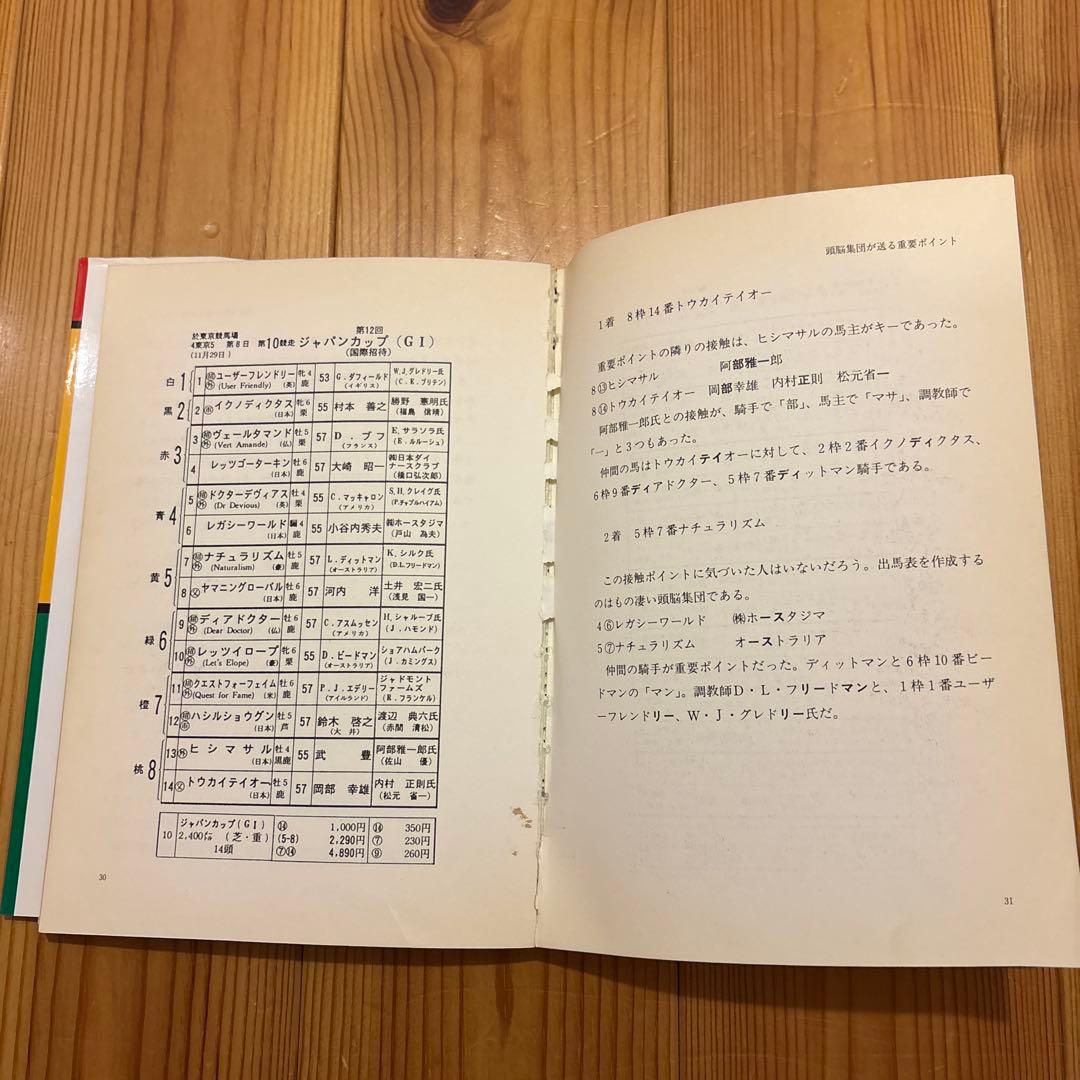 第12回
於東京競馬場
4東京5 第8日 第10競走 ジャパンカップ(GI)
(11月29日) (国際招待)
白1 1 招外 ユーザーフレンドリー (User Friendly) (英) 牝4鹿 53 G.ダフィールド (イギリス) W.J.グレドリー氏 (C.E.ブリテン)
黒2 2 市 イクノディクタス (日本) 牝6栗 55 村本 善之 勝野 憲明氏 (福島 信晴)
赤3 3 招外 ヴェールタマンド (Vert Amande) (仏) 牡5栗 57 D.ブフ (フランス) E.サラソラ氏 (E.ルルーシュ)
4 レッツゴーターキン (日本) 牡6鹿 57 大崎 昭一 ㈱日本ダイナースクラブ (橋口弘次郎)
青4 5 招外 ドクターデヴィアス (Dr Devious) (英) 牡4栗 55 C.マッキャロン (アメリカ) S.H.クレイグ氏 (P.チャプルハイアム)
6 レガシーワールド (日本) 騸4鹿 55 小谷内秀夫 ㈱ホースタジマ (戸山 為夫)
黄5 7 招外 ナチュラリズム (Naturalism) (豪) 牡5鹿 57 L.ディットマン (オーストラリア) K.シルク氏 (D.L.フリードマン)
8 父 ヤマニングローバル (日本) 牡6鹿 57 河内 洋 土井 宏二氏 (浅見 国一)
緑6 9 招外 ディアドクター (Dear Doctor) (仏) 牡6鹿 57 C.アスムッセン (アメリカ) H.シャループ氏 (J.ハモンド)
10 招外 レッツイロープ (Let's Elope) (豪) 牝6栗 55 D.ビードマン (オーストラリア) ショアハムパーク (J.カミングス)
橙7 11 招外 クエストフォーフェイム (Quest for Fame) (米) 牡6鹿 57 P.J.エデリー (アイルランド) ジャドモントファームズ (R.フランケル)
12 招市 ハシルショウグン (日本) 牡5芦 57 鈴木 啓之 (大井) 渡辺 典六氏 (赤間 清松)
桃8 13 外 ヒシマサル (日本) 牡4黒鹿 55 武 豊 阿部雅一郎氏 (佐山 優)
14 父 トウカイテイオー (日本) 牡5鹿 57 岡部 幸雄 内村 正則氏 (松元 省一)
10 ジャパンカップ(GI) ⑭ 1,000円 ⑭ 350円
2,400㍍ (芝・重) (5-8) 2,290円 ⑦ 230円
14頭 ⑦⑭ 4,890円 ⑨ 260円
30
頭脳集団が送る重要ポイント
1着 8枠14番トウカイテイオー
重要ポイントの隣りの接触は、ヒシマサルの馬主がキーであった。
8⑬ヒシマサル 阿部雅一郎
8⑭トウカイテイオー 岡部幸雄 内村正則 松元省一
阿部雅一郎氏との接触が、騎手で「部」、馬主で「マサ」、調教師で
「一」と3つもあった。
仲間の馬はトウカイテイオーに対して、2枠2番イクノディクタス、
6枠9番ディアドクター、5枠7番ディットマン騎手である。
2着 5枠7番ナチュラリズム
この接触ポイントに気づいた人はいないだろう。出馬表を作成する
のはもの凄い頭脳集団である。
4⑥レガシーワールド ㈱ホースタジマ
5⑦ナチュラリズム オーストラリア
仲間の騎手が重要ポイントだった。ディットマンと6枠10番ビー
ドマンの「マン」。調教師D・L・フリードマンと、1枠1番ユーザ
ーフレンドリー、W・J・グレドリー氏だ。
31